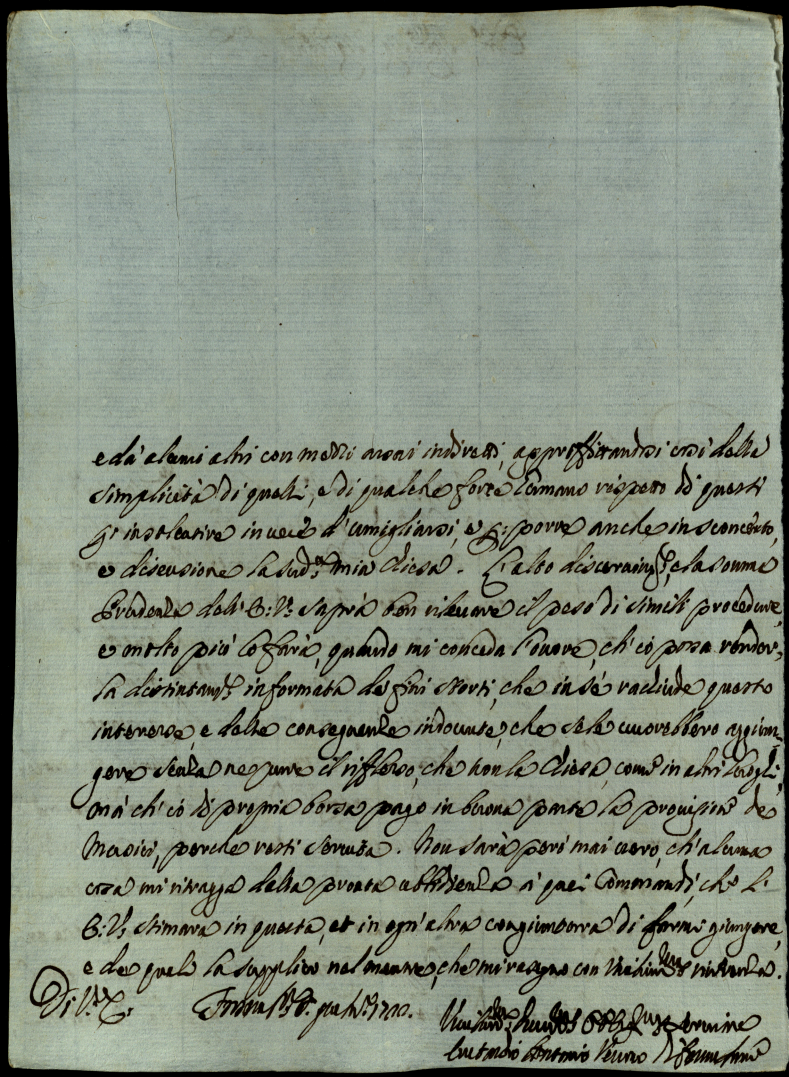 e da alcuni altri con mezzi assai indiretti, approffittandosi così della
simplicità di quelli, e di qualche forse humano rispetto di questi
p insolentire in vece d'umigliarsi, e p: porre anche in sconcerto,
e discussione la sud.a mia Chiesa. L'alto discernim.to, e la somma
Prudenza dell'E: V. saprà ben rilevare il peso di simili procedure,
e molto più lo farà, quando mi conceda l'onore, ch'io possa render,,
la distintam.te informata de fini storti, che in sé rachiude questo
interesse, e delle conseguenze indovute, che se le vuorebbero aggiun,,
gere senza ne pure il riflesso, che non la Chiesa, come in altri luoghi,
mà ch'io di propria borsa pago in buona parte la provisione de
Musici, perche resti servita. Non sarà però mai vero, ch'alcuna
cosa mi ritragga dalla pronta ubbidienza a quei Commandi, che l'
E: V. stimarà in questa, et in ogn'altra congiuntura di farmi giungere,
e de quali la supplico nel mentre, che mi rassegno con
Di V. E.
Antonio